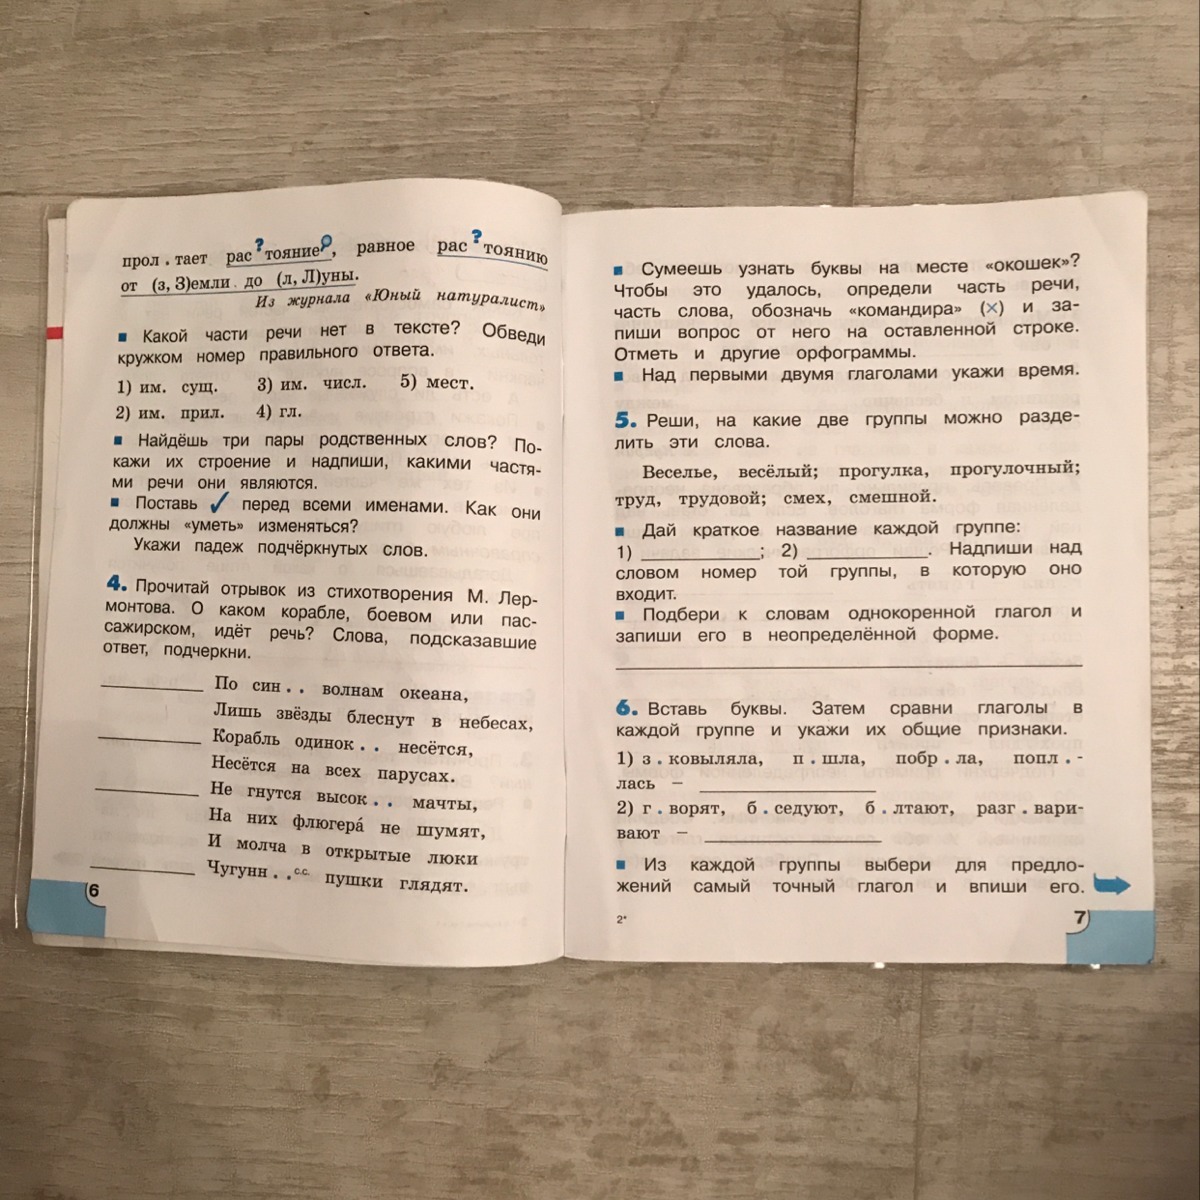 прол . тает рас ? тояние, равное рас ? тоянию
от (з, З)емли до (л, Л)уны.
Из журнала «Юный натуралист»
Какой части речи нет в тексте? Обведи
кружком номер правильного ответа.
1) им. сущ. 3) им. числ. 5) мест.
2) им. прил. 4) гл.
Найдёшь три пары родственных слов? По-
кажи их строение и надпиши, какими частя-
ми речи они являются.
Поставь ✓ перед всеми именами. Как они
должны «уметь» изменяться?
Укажи падеж подчёркнутых слов.
4. Прочитай отрывок из стихотворения М. Лер-
монтова. О каком корабле, боевом или пас-
сажирском, идёт речь? Слова, подсказавшие
ответ, подчеркни.
По син . . волнам океана,
Лишь звёзды блеснут в небесах,
Корабль одинок . . несётся,
Несётся на всех парусах.
Не гнутся высок . . мачты,
На них флюгера́ не шумят,
И молча в открытые люки
Чугунн . . с.с. пушки глядят.
6
Сумеешь узнать буквы на месте «окошек»?
Чтобы это удалось, определи часть речи,
часть слова, обозначь «командира» (×) и за-
пиши вопрос от него на оставленной строке.
Отметь и другие орфограммы.
Над первыми двумя глаголами укажи время.
5. Реши, на какие две группы можно разде-
лить эти слова.
Веселье, весёлый; прогулка, прогулочный;
труд, трудовой; смех, смешной.
Дай краткое название каждой группе:
1) ________; 2) ________. Надпиши над
словом номер той группы, в которую оно
входит.
Подбери к словам однокоренной глагол и
запиши его в неопределённой форме.
6. Вставь буквы. Затем сравни глаголы в
каждой группе и укажи их общие признаки.
1) з . ковыляла, п . шла, побр . ла, попл . -
лась – ________
2) г . ворят, б . седуют, б . лтают, разг . вари-
вают – ________
Из каждой группы выбери для предло-
жений самый точный глагол и впиши его.
2*
7